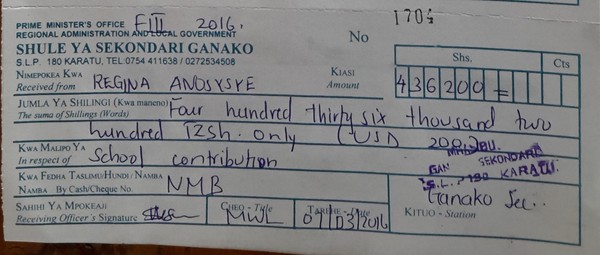 PRIME MINISTER'S OFFICE FIII 2016,
REGIONAL ADMINISTRATION AND LOCAL GOVERNMENT
SHULE YA SEKONDARI GANAKO
S.L.P. 180 KARATU, TEL:0754 411638 / 0272534508
No 1704
Shs. Cts
NIMEPOKEA KWA
Received from REGINA ANOSYSYE
KIASI
Amount 436200 =
JUMLA YA SHILINGI (Kwa maneno)
The suma of Shillings (Words) Four hundred thirty six thousand two
hundred TZSh. only (USD 200)
KWA MALIPO YA
In respect of School contribution
KWA FEDHA TASLIMU/HUNDI/ NAMBA
NAMBA By Cash/Cheque No. NMB
SEKONDARI
S.L. 180 KARATU
Ganako Sec..
KITUO - Station
SAHIHI YA MPOKEAJI
Receiving Officer's Signature
CHEO - Title
MWL
TAREHE - Date
07/03/2016